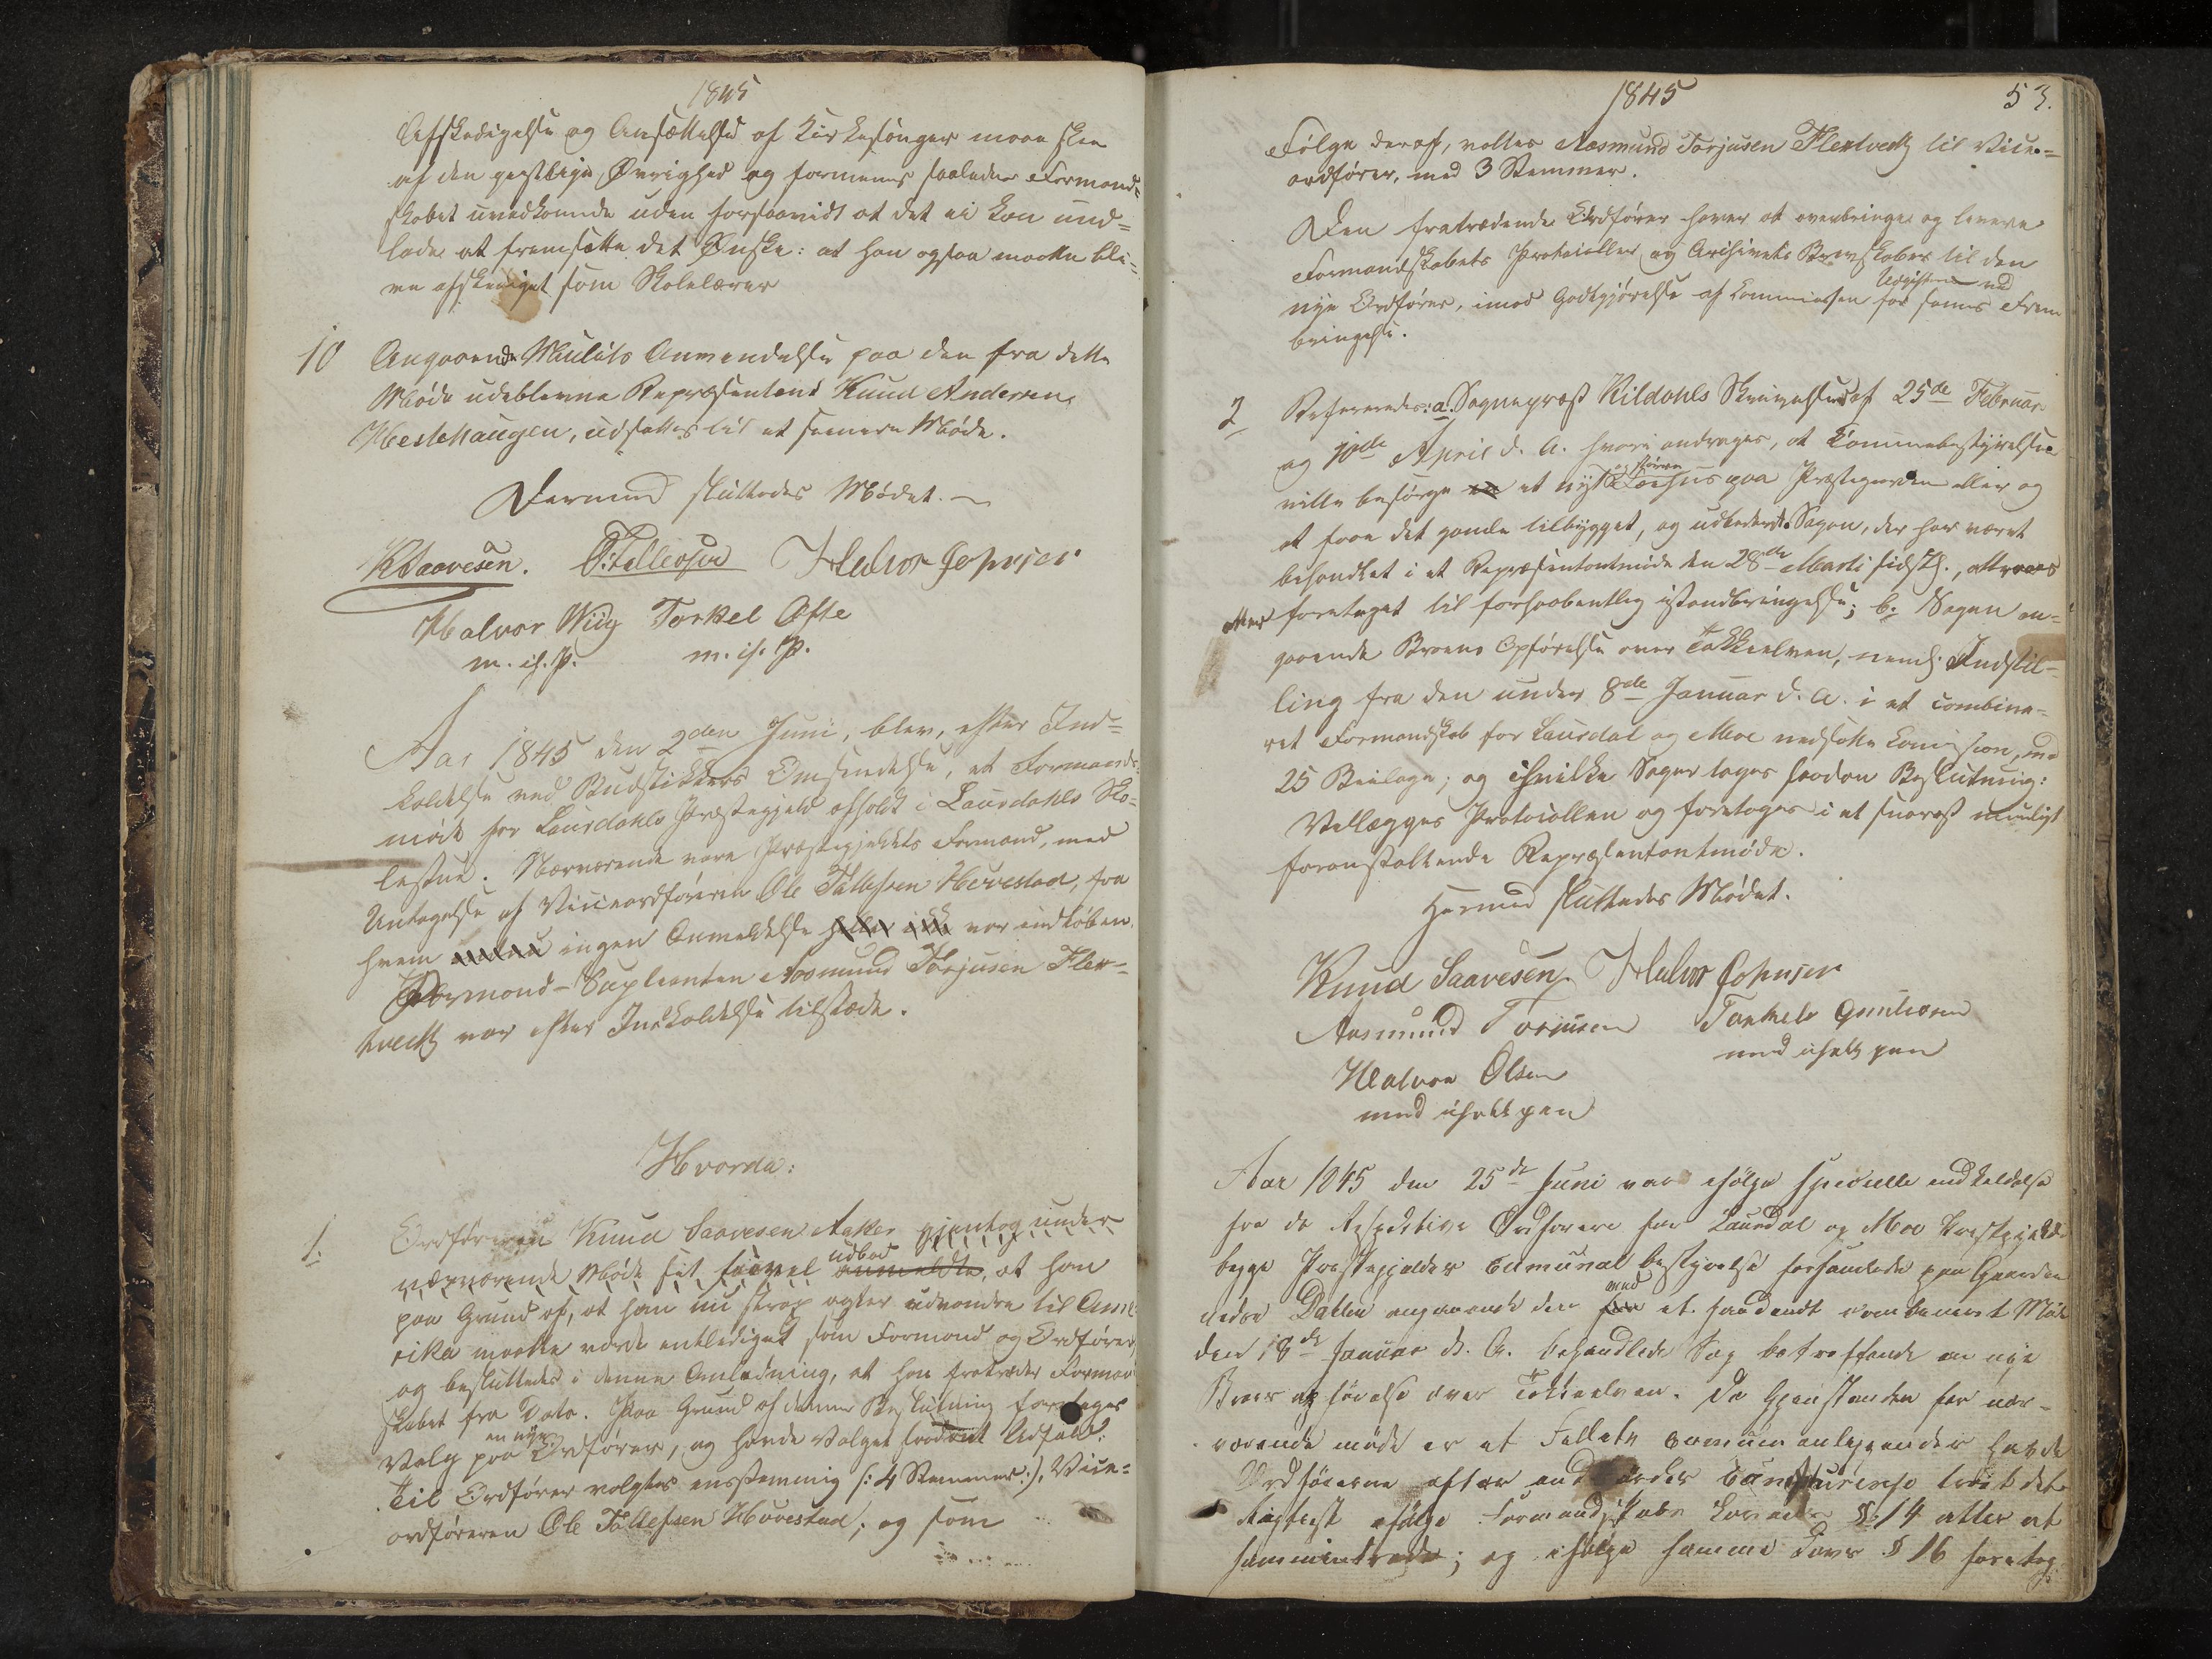 1845
Afskedigelse og Ansættelse af Kirkesanger maae skee
af den geistlige Øvrighed og formenes saaledes Formand-
skabet uvedkomende uden forsaavidt at det ei kan und=
lade at fremsætte det Ønske: at han ogsaa maatte bli=
ve afskediget som Skolelærer
10 Angaaende Mulcts Anvendelse paa den fra dette
Møde udeblevne Repræsentant Knud Andersen
Hestehaugen, udsættes til et senere Møde.
Dermed sluttedes Mødet. –
KSaavesen. O:Tallevsen Halvor Johnsen
Halvor Wiig Torkel Ofte
m. ih. P. m. ih. P.
Aar 1845 den 2den Juni, blev, efter Ind=
kaldelse ved Budstikkers Omsendelse, et Formands-
møde for Laurdahls Præstegjeld afholdt i Laurdahls Sko-
lestue. Nærværende vare Præstegjeldets Formænd, med
Undtagelse af Viceordføreren Ole Tallefsen Hovestad, fra
hvem ingen Anmeldelse var indløben.
Formand-Supleanten Aasmund Torjusen Flek=
tvedt var efter Indkaldelse tilstede.
Hvorda:
1. Ordføreren Knud Saavesen Aaker gjentog under
nærværende Møde sit udbad anmeldte, at han
paa Grund af, at han nu strax agter udvandre til Ame
rika maatte vorde entlediget som Formand og Ordfører,
og besluttedes i denne Anledning, at han fratræder Formand
skabet fra Dato. Paa Grund af denne Beslutning foretages
Valg paa en nye Ordfører, og havde Valget saadant Udfald:
Til Ordfører valgtes enstemmig (: 4 Stemmer :), Vice=
ordføreren Ole Tallefsen Hovestad; og som
1845 53.
Følge deraf, valtes Aasmund Torjusen Flektvedt til Vice=
ordfører, med 3 Stemmer.
Den fratrædende Ordfører haver at overbringe og levere
Formandskabets Protocoller og Archivets Brevskaber til den
nye Ordfører, imod Godtgjørelse af Communen for Udgiften ved sammes Frem
bringelse.
2 Refereredes: a. Sognepræst Kildahls Skrivelser af 25de Februar
og 10de April d. A. hvori andrages, at Communebestyrelsen
ville besørge et nyt og større Fæhus paa Præstegaarden eller og
at faae det gamle tilbygget, og udbedret. Sagen, der har været
behandlet i et Repræsentantmøde den 28de Marti sidstl.,
foretaget til forhaabentlig istandbringelse; b. Sagen an=
gaaende Broens Opførelse over Tokkeelven, neml: Indstil=
ling fra den under 8de Januar d. A. i et combine=
ret Formandskab for Laurdal og Moe nedsatte Comission, med
25 Beilage; og i hvilke Sager toges saadan Beslutning:
Vedlægges Protocollen og foretages i et snarest muligt
foranstaltende Repræsentantmøde.
Hermed sluttedes Mødet.
Knud Saavesen Halvor Johnsen
Aasmund Torjusen Torkels Gunleksen
med iholt pen
Halvor Olsen
med iholt pen
Aar 1845 den 25de Juni var ifølge specielle indkaldelse
fra de Respective Ordførere for Laurdal og Moe Præstegjelde
begge Præstegjelders Comunal bestyrelse forsamlede paa Gaarden
nedre Dalen angaaende den med et saadandt combineret Møde
den 18de Januar d. A. behandlede Sag betreffende en nye
Broes opførelse over Tokkeelven. Da Gjenstanden for nær-
værende møde er et Fælleds Comune anliggender havde
Ordførerne efter
Rigtigst ifølge Formandskabs Lovens § 14 atter at
sammentræde; og ifølge samme Lovs § 16 foretog